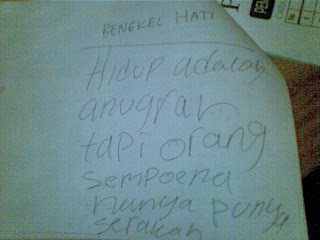 BENGKEL HATI
Hidup adalah
anugrah
tapi orang
sempoena
hanya punya
serakah